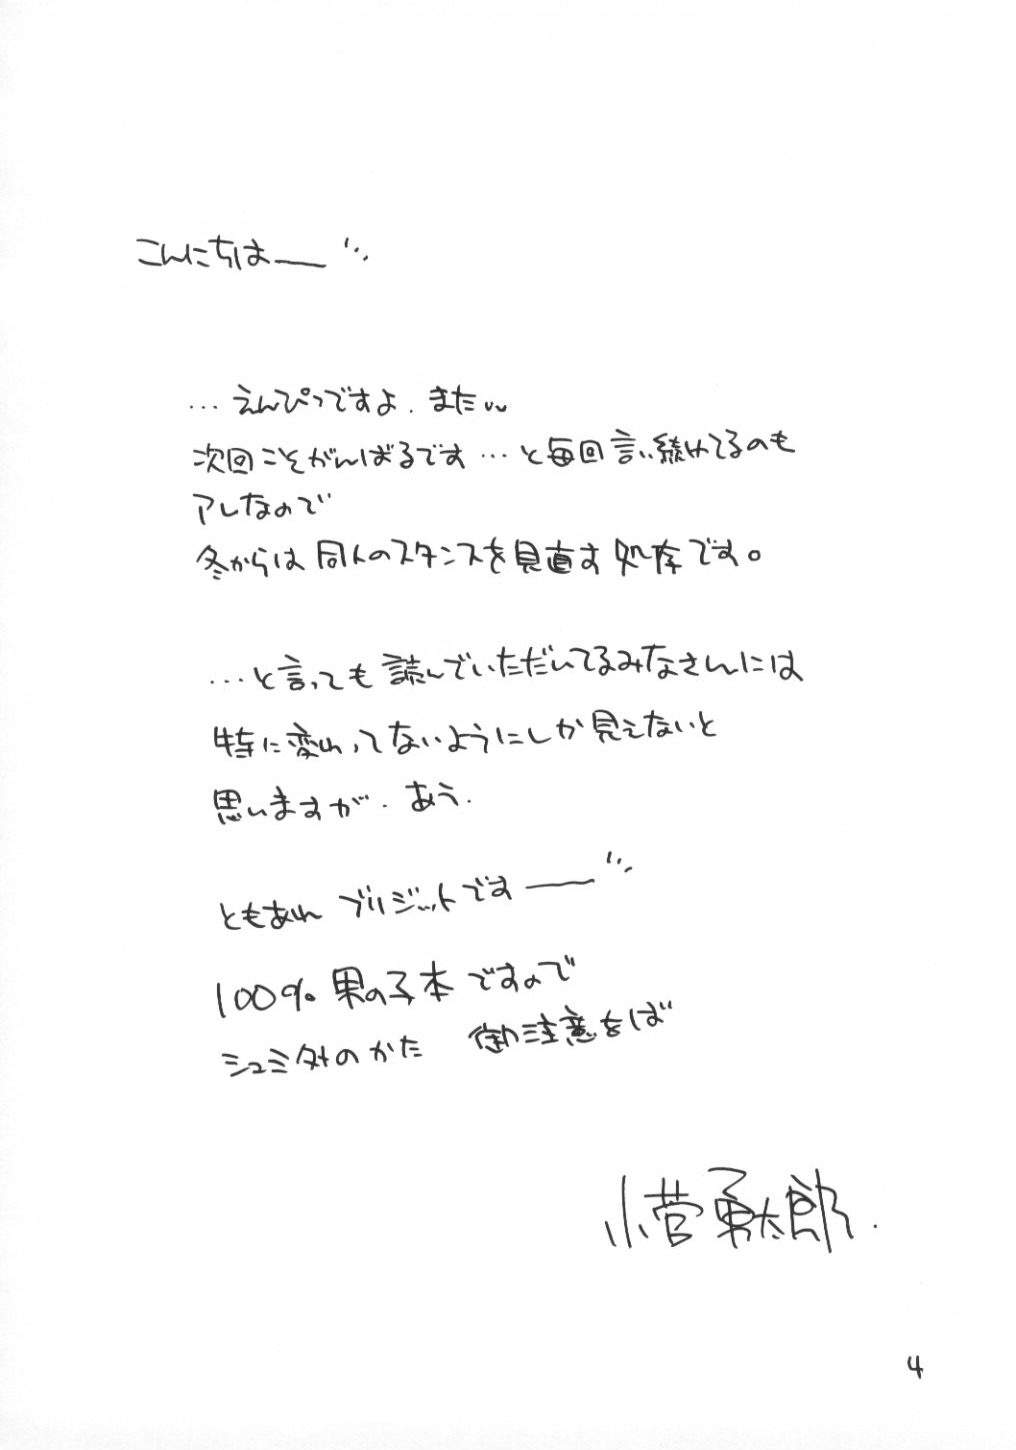 こんにちはー
…えんぴつですよ.また
次回こそがんばるです…と毎回言い続けてるのも
アレなので
冬からは同人のスタンスを見直す処存です。
…と言っても読んでいただいてるみなさんには
特に変わってないようにしか見えないと
思いますが.あう.
ともあれ ブリジットですー
100% 男の子本ですので
シュミ外のかた 御注意をば
小菅勇太郎.
4